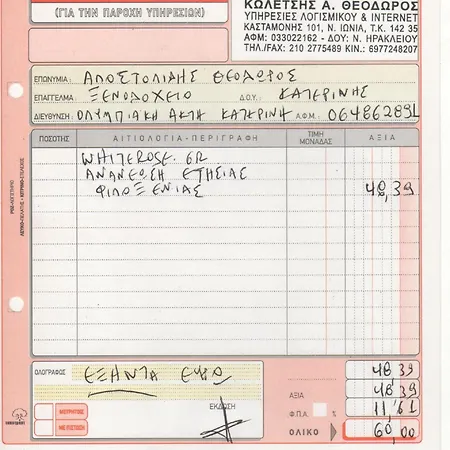 (ΓΙΑ ΤΗΝ ΠΑΡΟΧΗ ΥΠΗΡΕΣΙΩΝ)
ΚΩΛΕΤΣΗΣ Α. ΘΕΟΔΩΡΟΣ
ΥΠΗΡΕΣΙΕΣ ΛΟΓΙΣΜΙΚΟΥ & INTERNET
ΚΑΣΤΑΜΟΝΗΣ 101, Ν. ΙΩΝΙΑ, Τ.Κ. 142 35
ΑΦΜ: 033022162 - ΔΟΥ: Ν. ΗΡΑΚΛΕΙΟΥ
ΤΗΛ./FAX: 210 2775489 ΚΙΝ.: 6977248207
ΕΠΩΝΥΜΙΑ: ΑΠΟΣΤΟΛΙΔΗΣ ΘΕΟΔΩΡΟΣ
ΕΠΑΓΓΕΛΜΑ ΞΕΝΟΔΟΧΕΙΟ Δ.Ο.Υ. ΚΑΤΕΡΙΝΗΣ
ΔΙΕΥΘΥΝΣΗ: ΟΛΥΜΠΙΑΚΗ ΑΚΤΗ ΚΑΤΕΡΙΝΗ Α.Φ.Μ.: 064862891
ΠΟΣΟΤΗΣ ΑΙΤΙΟΛΟΓΙΑ-ΠΕΡΙΓΡΑΦΗ ΤΙΜΗ ΜΟΝΑΔΟΣ ΑΞΙΑ
WHITEROSE.GR
ΑΝΑΝΕΩΣΗ ΕΤΗΣΙΑΣ
ΦΙΛΟΞΕΝΙΑΣ 48,39
ΟΛΟΓΡΑΦΩΣ ΕΞΗΝΤΑ ΕΥΡΩ 48 39
ΑΞΙΑ 48,39
ΕΚΔΟΣΗ
ΜΕΤΡΗΤΟΙΣ Φ.Π.Α. 11,61
ΜΕ ΠΙΣΤΩΣΗ ΟΛΙΚΟ 60,00